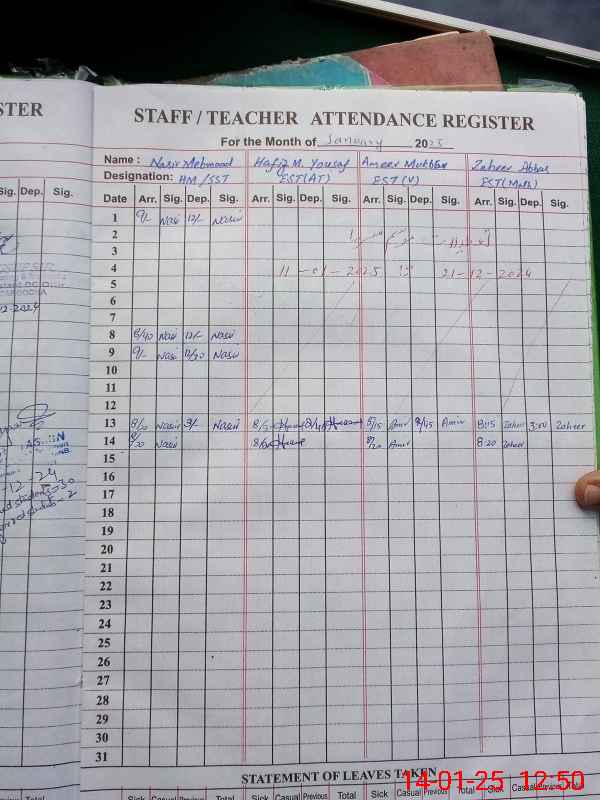 STER
STAFF / TEACHER ATTENDANCE REGISTER
For the Month of January 2025
Name : Nasir Mehmood Hafiz M. Yousaf Ameer Mukhtar Zaheer Abbas
Designation: HM/SST EST(AT) EST(V) EST(Math)
Sig. Dep. Sig.
Date Arr. Sig. Dep. Sig. Arr. Sig. Dep. Sig. Arr. Sig. Dep. Sig. Arr. Sig. Dep. Sig.
1 9/- Nasir 12/- Nasir
2 تعطیلات موسم سرما
3
4 11-01-2025 تا 21-12-2024
5
6
7
8 8/40 Nasir 12/- Nasir
9 9/- Nasir Nasir
10
11
12
13 Nasir 3/- Nasir 8/15 Amir Amir 8:15 Zaheer 3:00 Zaheer
14 Nasir 8/20 Amir 8:20 Zaheer
15
16
17
18
19
20
21
22
23
24
25
26
27
28
29
30
31
STATEMENT OF LEAVES TAKEN
Sick Casual Previous Total Sick Casual Previous Total Sick Casual Previous Total Sick Casual Previous Total
14-01-25 12:50